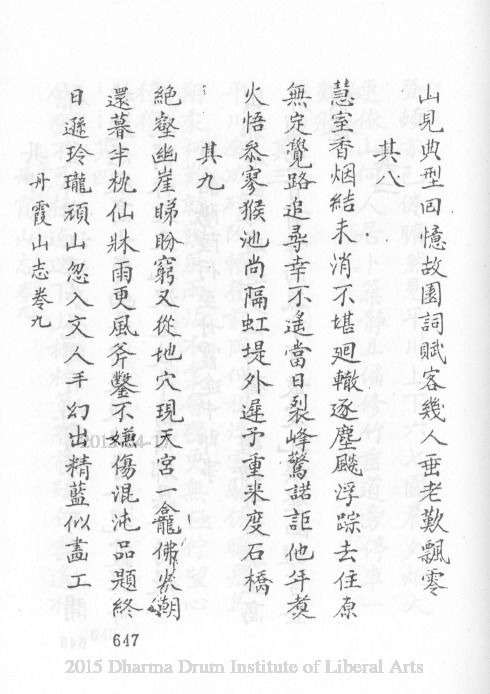 山見典型回憶故園詞賦客幾人垂老歎飄零
其八
慧室香烟結未消不堪廻轍逐塵飈浮踪去住原
無定覺路追尋幸不遙當日裂峰驚諾詎他年煑
火悟叅寥猴池尚隔虹堤外遲予重來度石橋
其九
絕壑幽崖睇盼窮又從地穴現天宮龕佛火潮
還暮半枕仙牀雨更風斧鑿不嫌傷混沌品題終
日遜玲瓏頑山忽入文人手幻出精藍似畵工
丹霞山志卷九
647
2015 Dharma Drum Institute of Liberal Arts